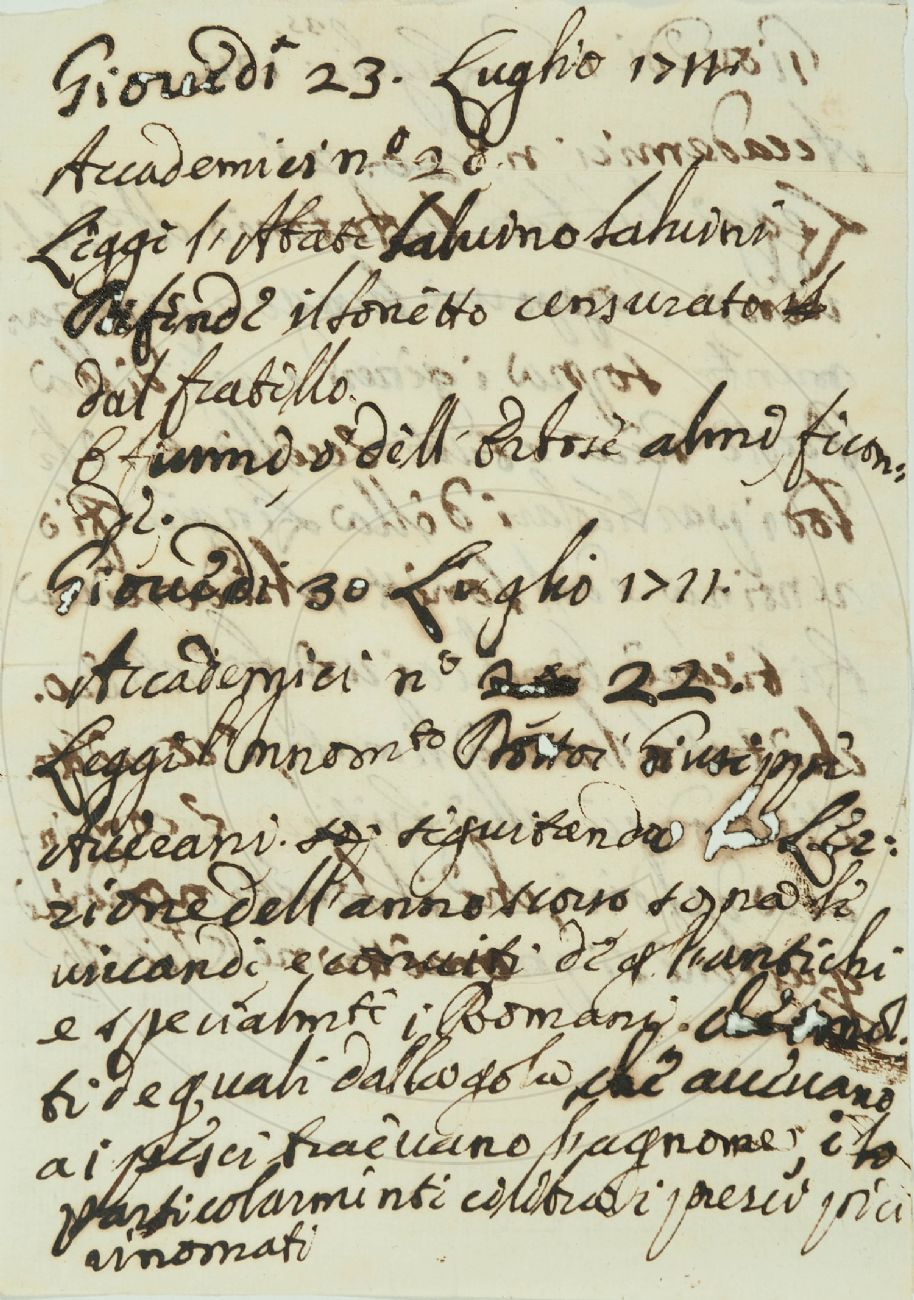 Giovedi 23. Luglio 1711.
Accademici n.º 20.
Leggé l'Abate Salvino Salvini
Difende il sonetto censurato il
dal fratello.
E fummo dell' Ortose alme fecon-
de.
Giovedi 30 Luglio 1711.
Accademici n.º 22.
Legge l' Dottor Giuseppe
Averani. seguitando la Le-
zione dell'anno scorso sopra le
vivande e conviti de gl'antichi
e specialmte i Romani. che mol-
ti de quali dalla gola che avevano
ai pesci traevano l'agnome, e lo
particolarmente celebra i pesci piu
rinomati